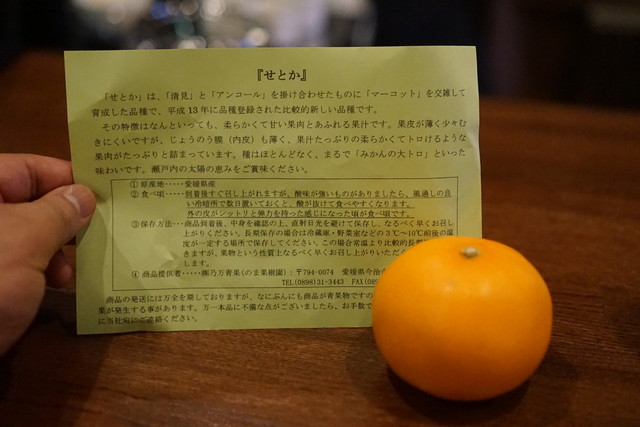 『せとか』
「せとか」は、「清見」と「アンコール」を掛け合わせたものに「マーコット」を交雑して
育成した品種で、平成13年に品種登録された比較的新しい品種です。
その特徴はなんといっても、柔らかくて甘い果肉とあふれる果汁です。果皮が薄く少々む
きにくいですが、じょうのう膜（内皮）も薄く、果汁たっぷりの柔らかくてトロけるような
果肉がたっぷりと詰まっています。種はほとんどなく、まるで「みかんの大トロ」といった
味わいです。瀬戸内の太陽の恵みをご賞味ください。
① 原産地・・・・・愛媛県産
② 食べ頃・・・・・到着後すぐ召し上がれますが、酸味が強いものがありましたら、風通しの良
い冷暗所で数日置いておくと、酸が抜けて食べやすくなります。
外の皮がシットリと弾力を持った感じになった頃が食べ頃です。
③ 保存方法・・・商品到着後、中身を確認の上、直射日光を避けて保存し、なるべく早くお召し
上がりください。長期保存の場合は冷蔵庫・野菜室などの3℃～10℃前後の温
度が一定する場所で保存してください。この場合常温より比較的長期
きますが、果物という性質上なるべく早くお召し上がりいただく
します。
④ 商品提供者・・・・・㈱乃万青果(のま果樹園)：〒794-0074 愛媛県今治
TEL(0898)31-3443 FAX(089
商品の発送には万全を期しておりますが、なにぶんにも商品が青果物ですの
果が発生する事があります。万一本品に不備な点がございましたら、お手数で
に当社宛にご連絡ください。